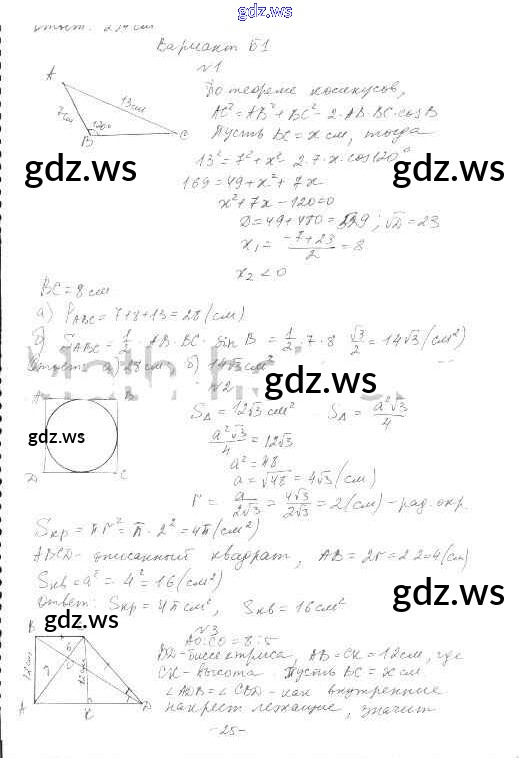 gdz.ws
Ответ: 274 см
Вариант Б1
№1
A
13 см
7 см
120°
B
C
По теореме косинусов,
AC² = AB² + BC² - 2·AB·BC·cos B
Пусть BC = x см, тогда
13² = 7² + x² 2·7·x·cos120°
gdz.ws
gdz.ws
169 = 49 + x² + 7x
x² + 7x - 120 = 0
D = 49 + 480 = 529; √D = 23
x₁ = (-7+23)/2 = 8
x₂ < 0
BC = 8 см
а) P_ABC = 7+8+13 = 28 (см)
б) S_ABC = 1/2 · AB · BC · sin B = 1/2 · 7 · 8 √3/2 = 14√3 (см²)
Ответ: а) 28 см б) 14√3 см²
gdz.ws
№2
A B
S_Δ = 12√3 см² S_Δ = a²√3/4
gdz.ws
a²√3/4 = 12√3
a² = 48
D C
a = √48 = 4√3 (см)
r = a/2√3 = 4√3/2√3 = 2 (см) - рад. окр.
S_кр = πr² = π·2² = 4π (см²)
ABCD - описанный квадрат, AB = 2r = 2 2 = 4 (см)
S_кв = a² = 4² = 16 (см²)
gdz.ws
Ответ: S_кр = 4π см², S_кв = 16 см²
gdz.ws
№3
AO:CO = 8:5
B
12 см
12 см
A
K
D
BD - биссектриса, AB = CK = 12 см, где
CK - высота. Пусть BC = x см.
∠ADB = ∠CBD - как внутренние
накрест лежащие, значит
- 25 -